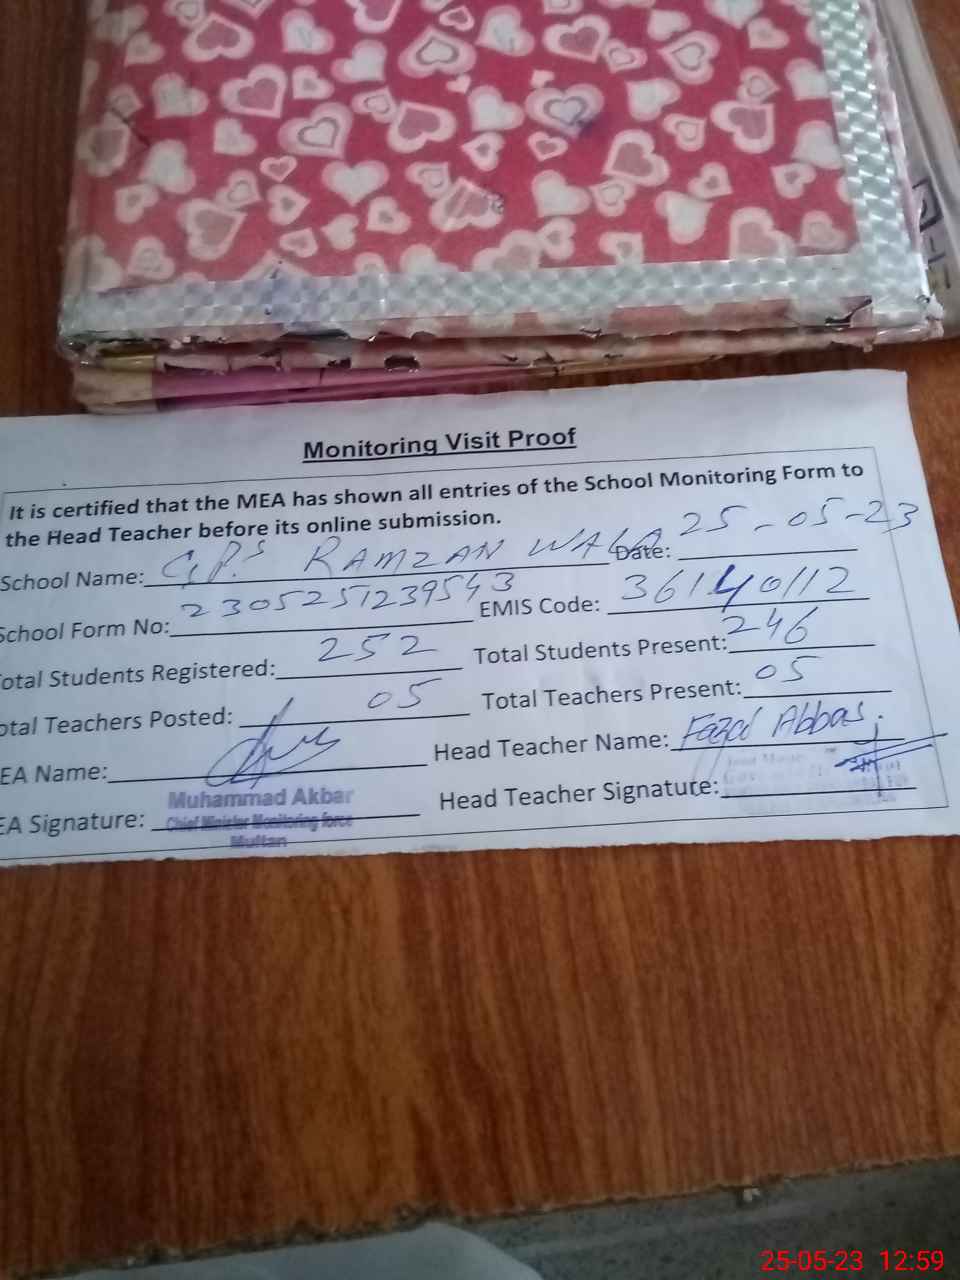 Monitoring Visit Proof
It is certified that the MEA has shown all entries of the School Monitoring Form to
the Head Teacher before its online submission.
School Name: G.P.S RAMZAN WALA Date: 25-05-23
School Form No: 2305251239543 EMIS Code: 36140112
otal Students Registered: 252 Total Students Present: 246
otal Teachers Posted: 05 Total Teachers Present: 05
EA Name: Head Teacher Name: Fazal Abbas.
Muhammad Akbar
EA Signature: Chief Minister Monitoring force Head Teacher Signature:
Multan
25-05-23 12:59